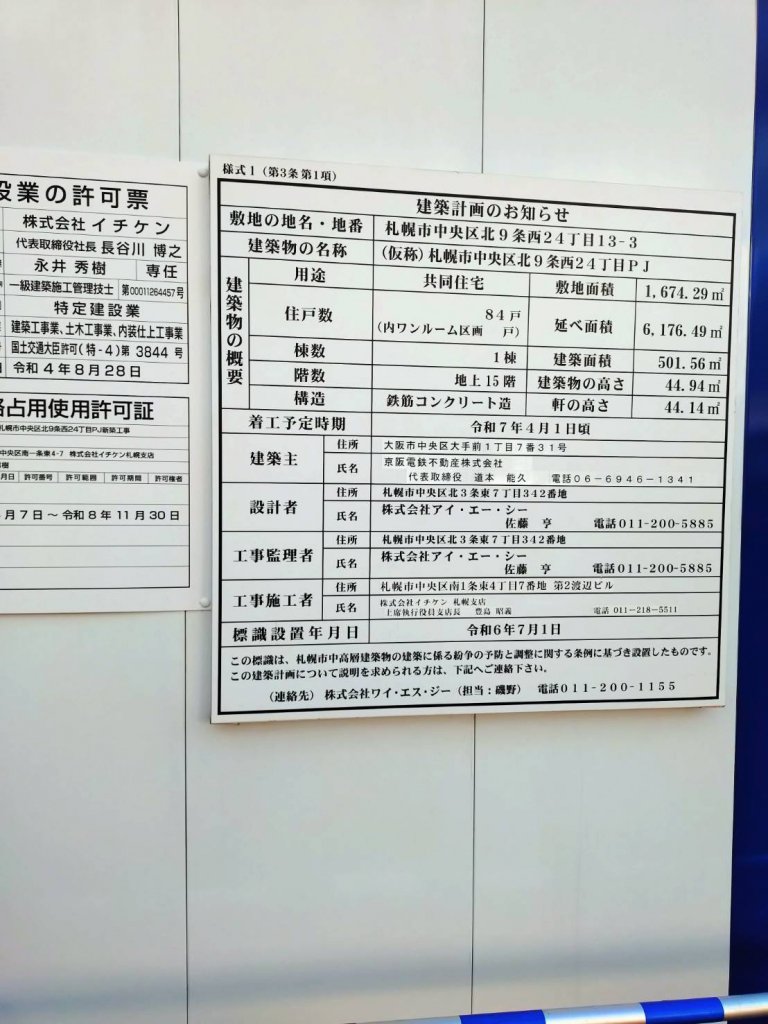 設業の許可票
株式会社 イチケン
代表取締役社長 長谷川 博之
永井 秀樹 専任
一級建築施工管理技士 第00011264457号
特定建設業
建築工事業、土木工事業、内装仕上工事業
国土交通大臣許可(特-4)第 3844 号
令和 4 年 8 月 28 日
占用使用許可証
札幌市中央区北9条西24丁目PJ新築工事
中央区南一条東4-7 株式会社イチケン札幌支店
月日 許可番号 許可範囲 許可期間 許可権者
月 7 日 ～ 令和 8 年 11 月 30 日
様式1（第3条 第1項）
建築計画のお知らせ
敷地の地名・地番 札幌市中央区北9条西24丁目13-3
建築物の名称 (仮称)札幌市中央区北9条西24丁目PJ
建築物の概要
用途 共同住宅 敷地面積 1,674.29㎡
住戸数 84戸 (内ワンルーム区画 戸) 延べ面積 6,176.49㎡
棟数 1棟 建築面積 501.56㎡
階数 地上15階 建築物の高さ 44.94㎡
構造 鉄筋コンクリート造 軒の高さ 44.14㎡
着工予定時期 令和7年4月1日頃
建築主 住所 大阪市中央区大手前1丁目7番31号
氏名 京阪電鉄不動産株式会社
代表取締役 道本 能久 電話06-6946-1341
設計者 住所 札幌市中央区北3条東7丁目342番地
氏名 株式会社アイ・エー・シー
佐藤 亨 電話011-200-5885
工事監理者 住所 札幌市中央区北3条東7丁目342番地
氏名 株式会社アイ・エー・シー
佐藤 亨 電話011-200-5885
工事施工者 住所 札幌市中央区南1条東4丁目7番地 第2渡辺ビル
氏名 株式会社イチケン 札幌支店
上席執行役員支店長 豊島 昭義 電話 011-218-5511
標識設置年月日 令和6年7月1日
この標識は、札幌市中高層建築物の建築に係る紛争の予防と調整に関する条例に基づき設置したものです。
この建築計画について説明を求められる方は、下記へご連絡下さい。
（連絡先）株式会社ワイ・エス・ジー（担当：磯野） 電話011-200-1155